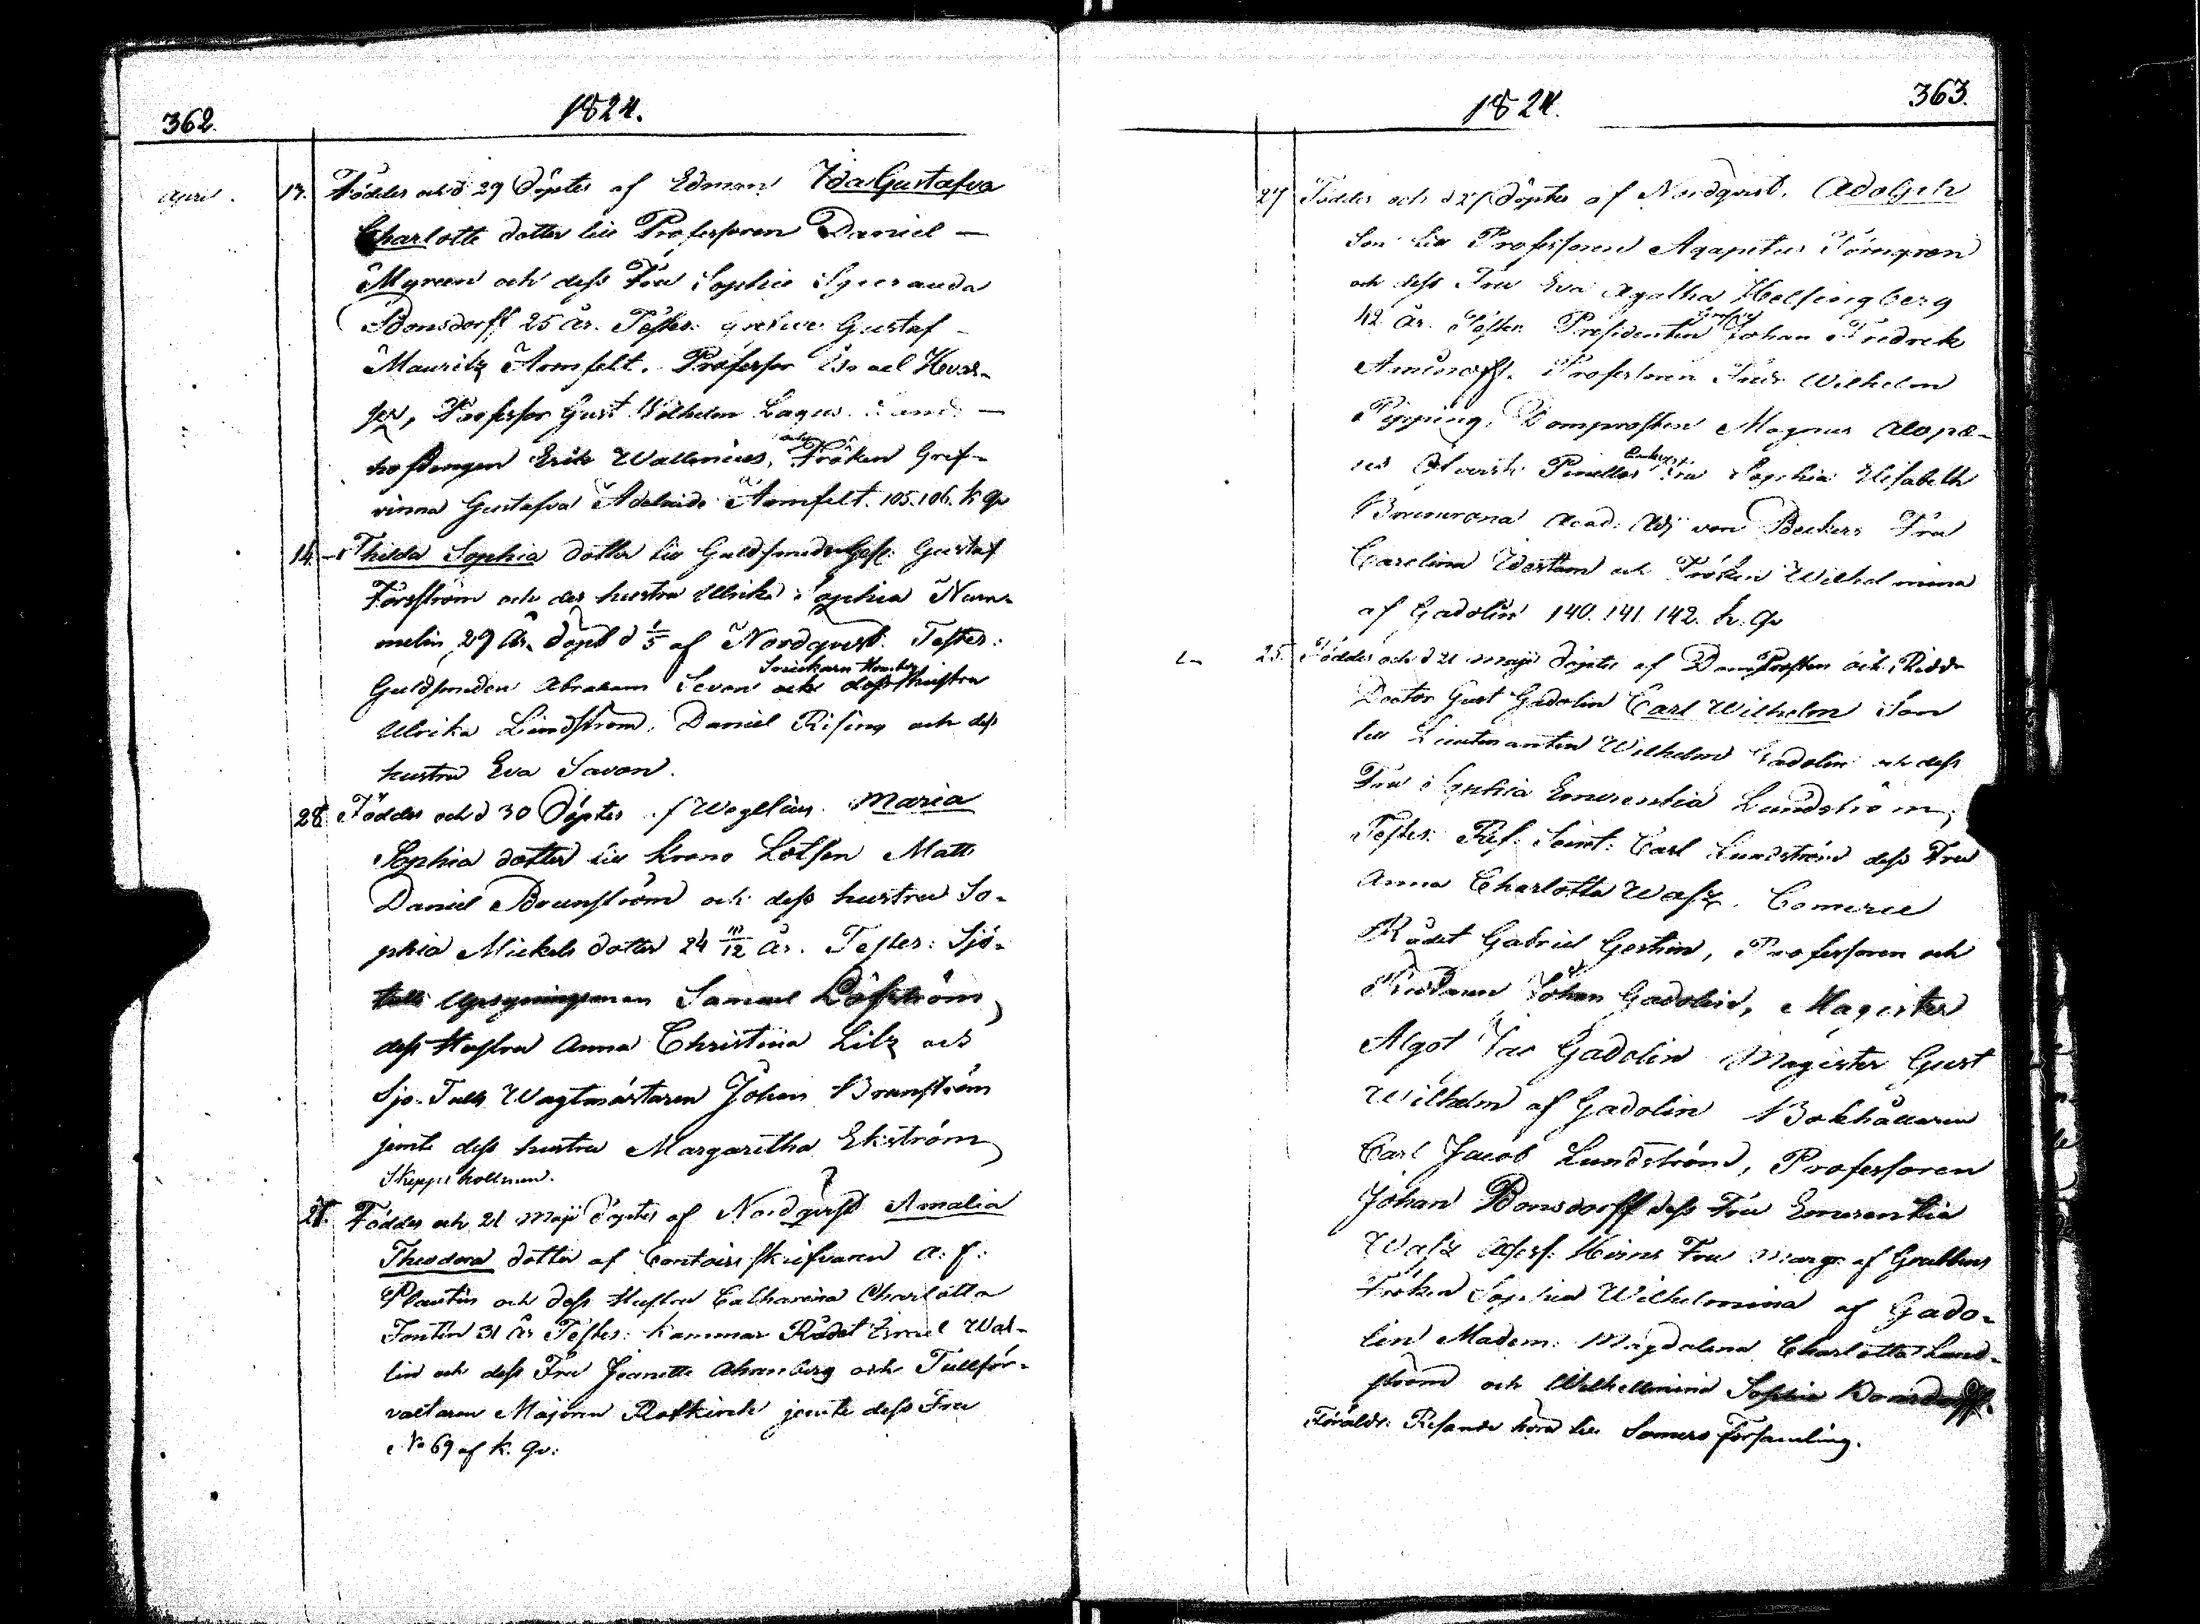 362.
1824.
April. 13. Föddes och d 29 döptes af Edman Ida Gustafva
Charlotte dotter till Professoren Daniel —
Myreen och dess Fru Sophie Speranda
Bonsdorff 25 år. Testes: Grefve Gustaf —
Mauritz Armfelt. Professor Israel Hwas-
ser, Professor Gust. Wilhelm Lagus. Lands —
hofdingen Erik Wallenius, och Fröken Gref-
vinna Gustafva Adelaide Armfelt. 105. 106. k qv
14. Thilda Sophia dotter till Guldsmeds Ges: Gustaf
Forsström och des hustru Ulrika Sophia Num-
melin, 29 år. döpt d 1/5 af Nordqvist. Testes:
Guldsmeden Abraham Levon och dess Hustru
Ulrika Lindström, Daniel Rising och des
hustru Eva Savon.
28. Föddes och d 30 döptes af Weglius Maria
Sophia dotter till Krono Lotsen Matts
Daniel Brunström och dess hustru So-
phia Mickels dotter 24 11/12 år. Testes: Sjö-
tulls Upsyningsman Samuel Löfström
dess Hustru Anna Christina Lilz och
Sjö-Tulls Wagtmästaren Johan Brunström
jemte dess hustru Margaretha Ekström
Skeppshollmen.
28. Föddes och 21 Maji döptes af Nordqvist Amalia
Theodora dotter af Contoirs skrifvaren A: F:
Plantin och dess Hustru Catharina Charlotta
Fontin 31 år Testes: Kammar Rådet Israel Wal-
lin och dess Fru Jeanette Ahanberg och Tullför-
valtaren Majoren Rotkirch jemte dess Fru
No 69 af k. qv:
1824.
363.
27 Föddes och d 27 döptes af Nordqvist. Adolph
Son till Professoren Agapetus Törngren
och dess Fru Eva Agatha Helsingberg
42 år. Testes: Presidenten Grefve Johan Fredrik
Aminoff. Professoren Fredr Wilhelm
Pipping, Domprosten Magnus Alopæ-
us Öfverste Pinellos Enkefru Fru Sophia Elisabeth
Bruncrona Acad: Adj von Beckers Fru
Carolina Westam och Fröken Wilhelmina
af Gadolin 140. 141. 142. k. qv
25. Föddes och d 21 Maji döptes af DomProsten och Ridd
Doctor Gust Gadolin Carl Wilhelm Son
till Lieutenanten Wilhelm Gadolin och dess
Fru Sophia Emerentia Lundström,
Testes: Ref: Secret: Carl Lundström dess Fru
Anna Charlotta Wasz. Comerce
Rådet Gabriel Gestrin, Professoren och
Riddaren Johan Gadolin, Magister
Algot Jac Gadolin Magister Gust
Wilhelm af Gadolin Bokhållaren
Carl Jacob Lundström, Professoren
Johan Bonsdorff dess Fru Emerentia
Wasz Assess. Hirns Fru Marg: af Grubbens
Fröken Sophia Wilhelmina af Gado-
lin Madem: Magdalena Charlotta Lund-
ström och Wilhelmina Sophia Bonsdorff.
Föräldr: Resande höra till Somero församling.